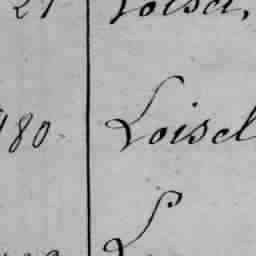 21 Loisel,
180 Loisel